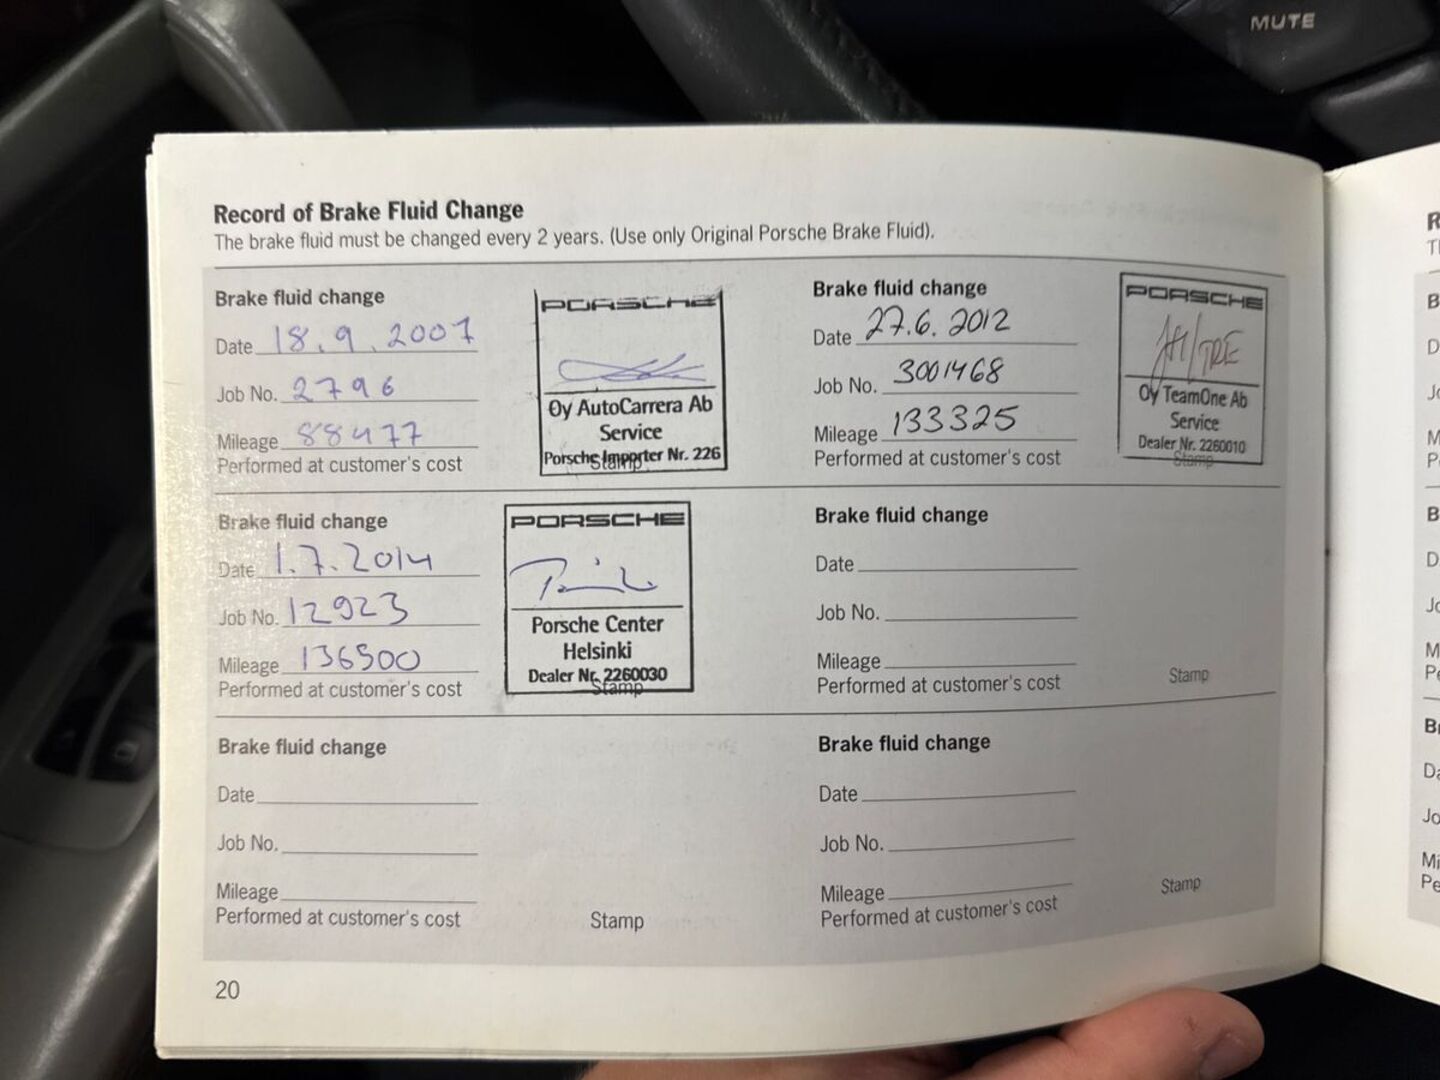 MUTE
Record of Brake Fluid Change
The brake fluid must be changed every 2 years. (Use only Original Porsche Brake Fluid).
Brake fluid change
Date 18.9.2007
Job No. 2796
Mileage 88477
Performed at customer's cost
PORSCHE
Oy AutoCarrera Ab
Service
Porsche Importer Nr. 226
Stamp
Brake fluid change
Date 27.6.2012
Job No. 3001468
Mileage 133325
Performed at customer's cost
PORSCHE
Oy TeamOne Ab
Service
Dealer Nr. 2260010
Stamp
Brake fluid change
Date 1.7.2014
Job No. 12923
Mileage 136500
Performed at customer's cost
PORSCHE
Porsche Center
Helsinki
Dealer Nr. 2260030
Stamp
Brake fluid change
Date
Job No.
Mileage
Performed at customer's cost
Stamp
Brake fluid change
Date
Job No.
Mileage
Performed at customer's cost
Stamp
Brake fluid change
Date
Job No.
Mileage
Performed at customer's cost
Stamp
20